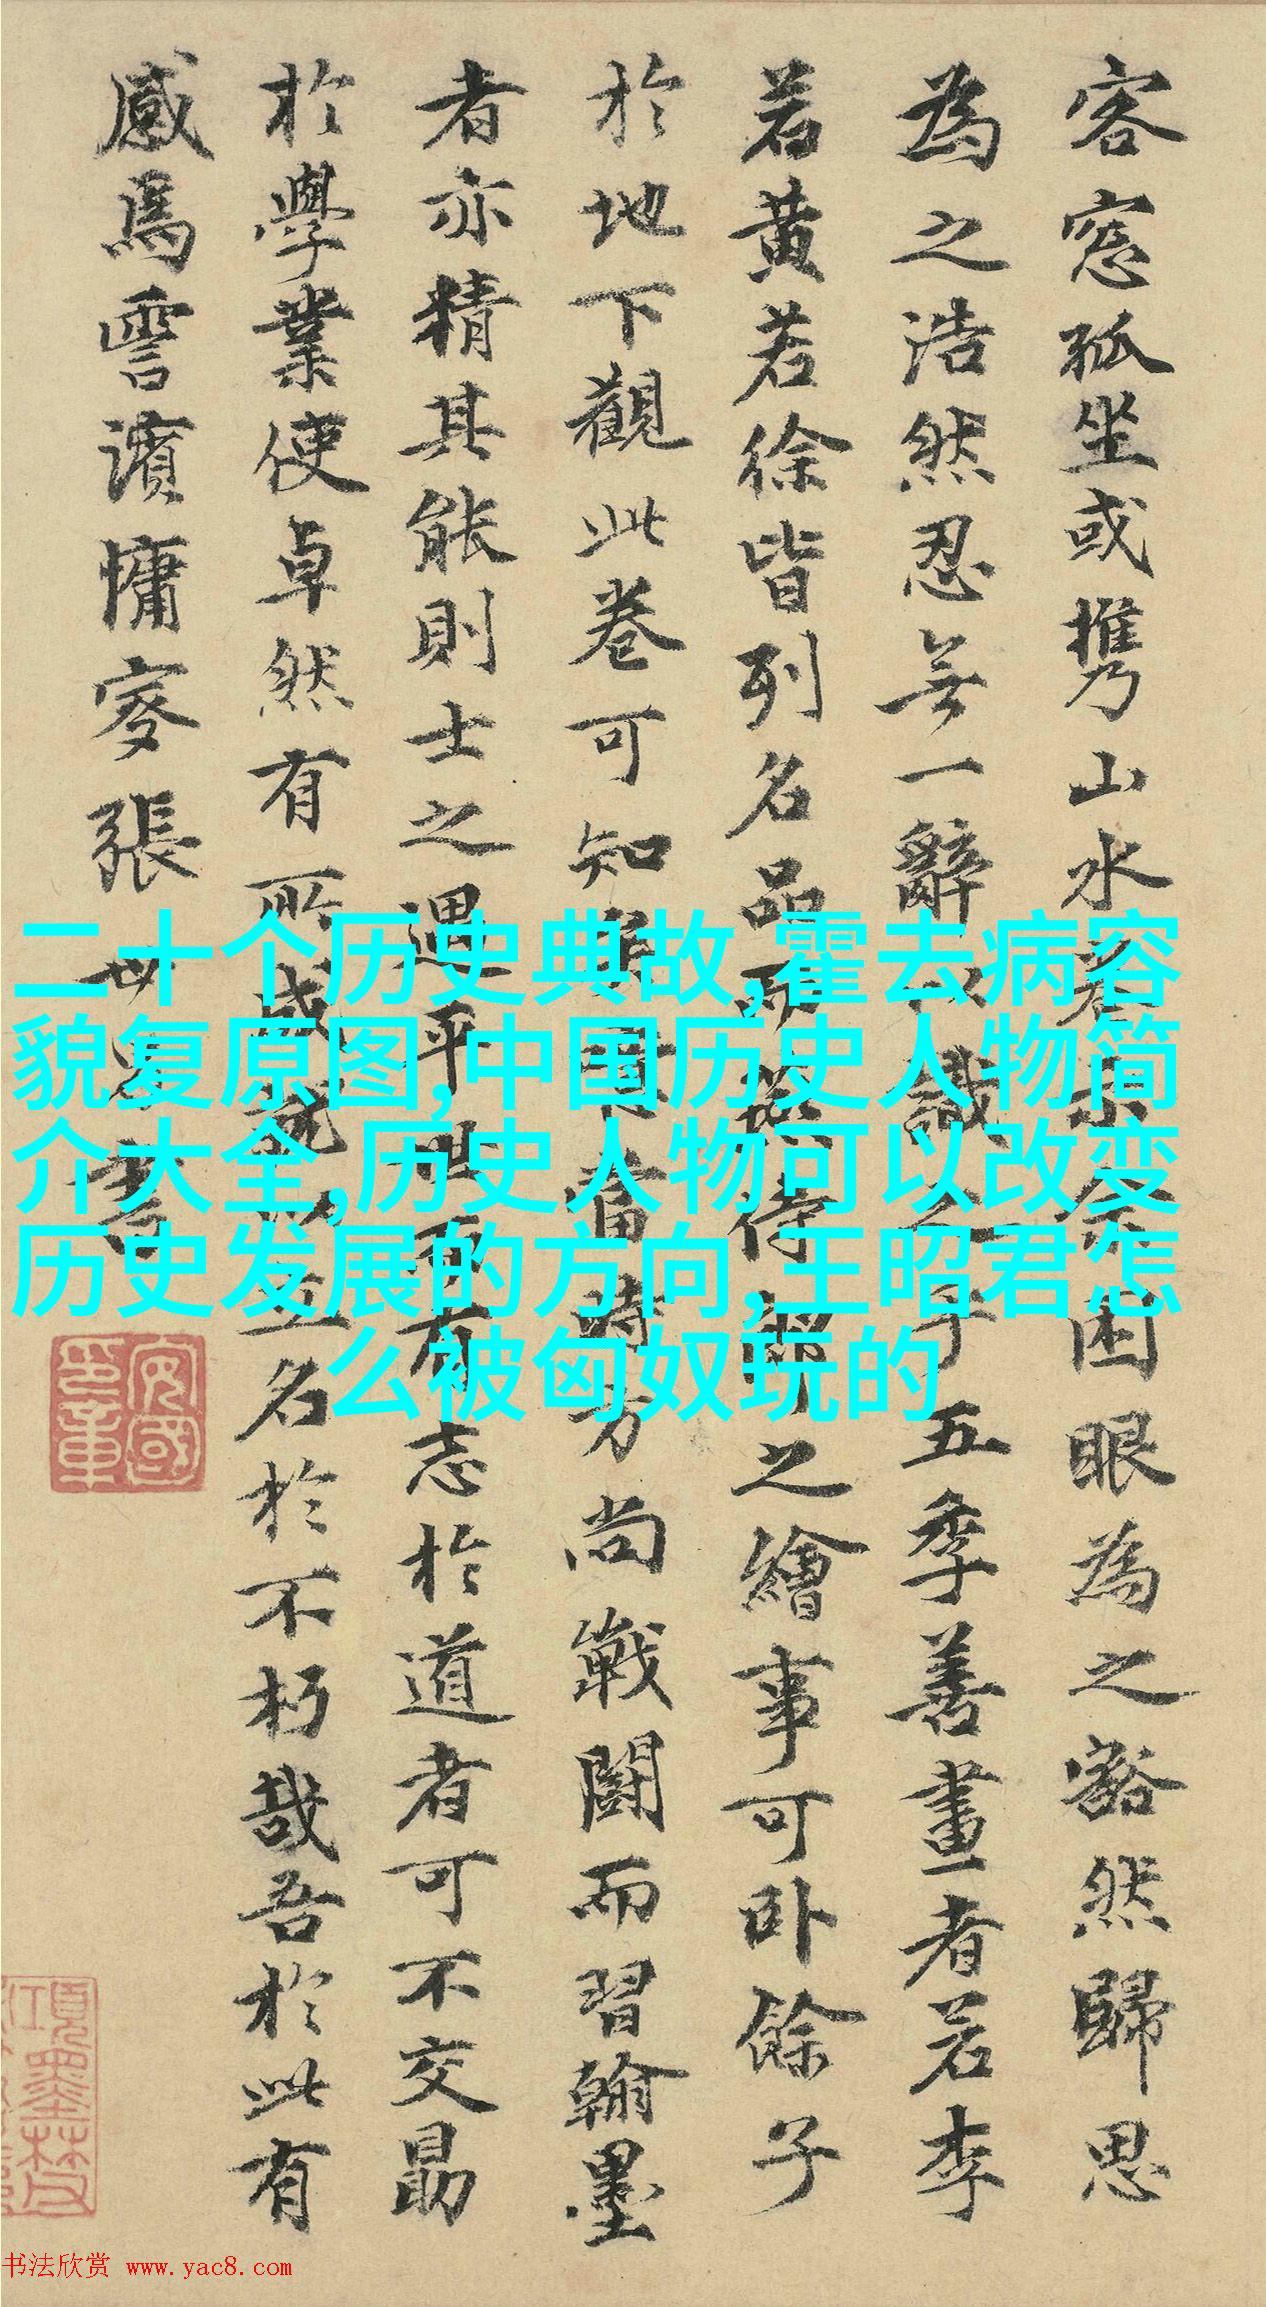 客窓孤坐或携山水卷示余困眼為之豁然歸思
為之浩然忍無一辭以識之乎五季善畫者若李
若黄若徐皆列名品而侍郎之繪事可卧餘子
於地下觀此卷可知當時方尚戰鬪而習翰墨
者亦精其能則士之遇平世而有志於道者可不交勗
於學業使卓然有所成就以立名於不朽哉吾於此有
感焉慵叟張世昌書
二十个历史典故,霍去病容
貌复原图,中国历史人物简
介大全,历史人物可以改变
历史发展的方向,王昭君怎
么被匈奴玩的
书法欣赏 www.yac8.com